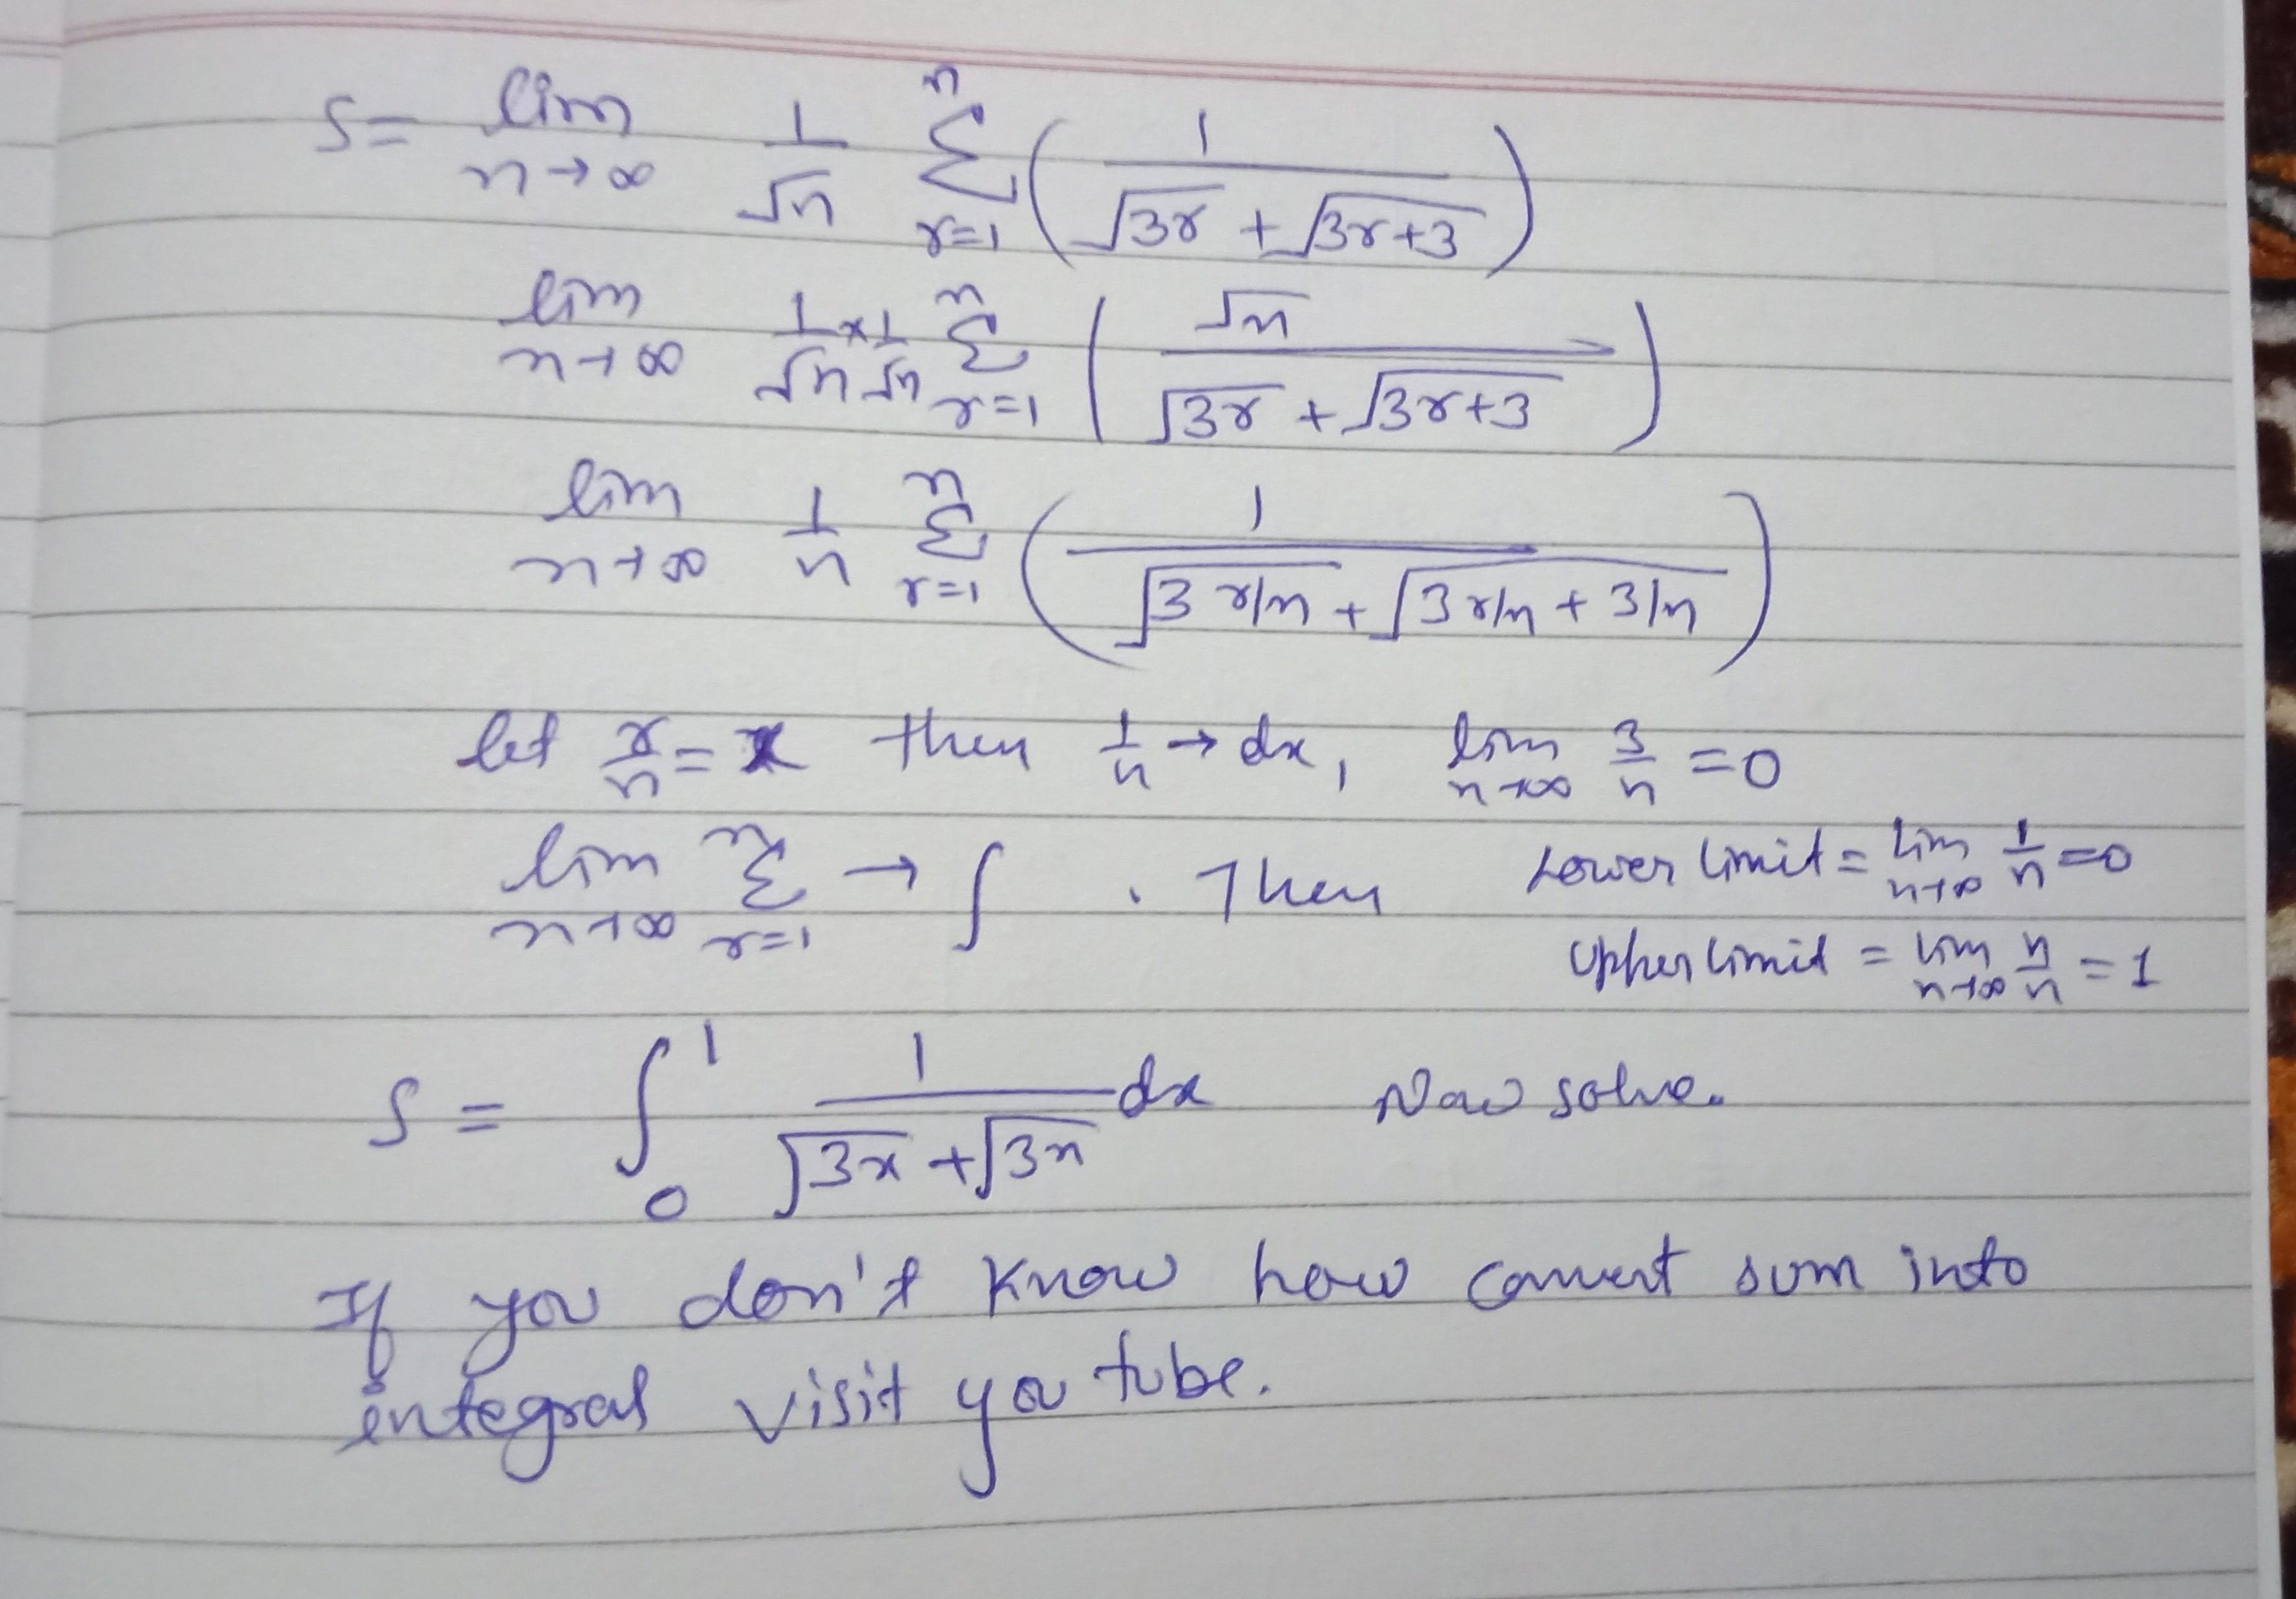 S = lim n→∞ 1/√n n Σ r=1 ( 1 / √3r + √3r+3 )
lim n→∞ 1/√n × 1/√n n Σ r=1 ( √n / √3r + √3r+3 )
lim n→∞ 1/n n Σ r=1 ( 1 / √3 r/n + √3 r/n + 3/n )
let r/n = x then 1/n → dx, lim n→∞ 3/n = 0
lim n→∞ n Σ r=1 → ∫ . Then Lower limit = lim n→∞ 1/n = 0
Upper limit = lim n→∞ n/n = 1
S = ∫ 0 1 1 / √3x + √3x dx Now solve.
If you don't know how convert sum into
integral visit you tube.